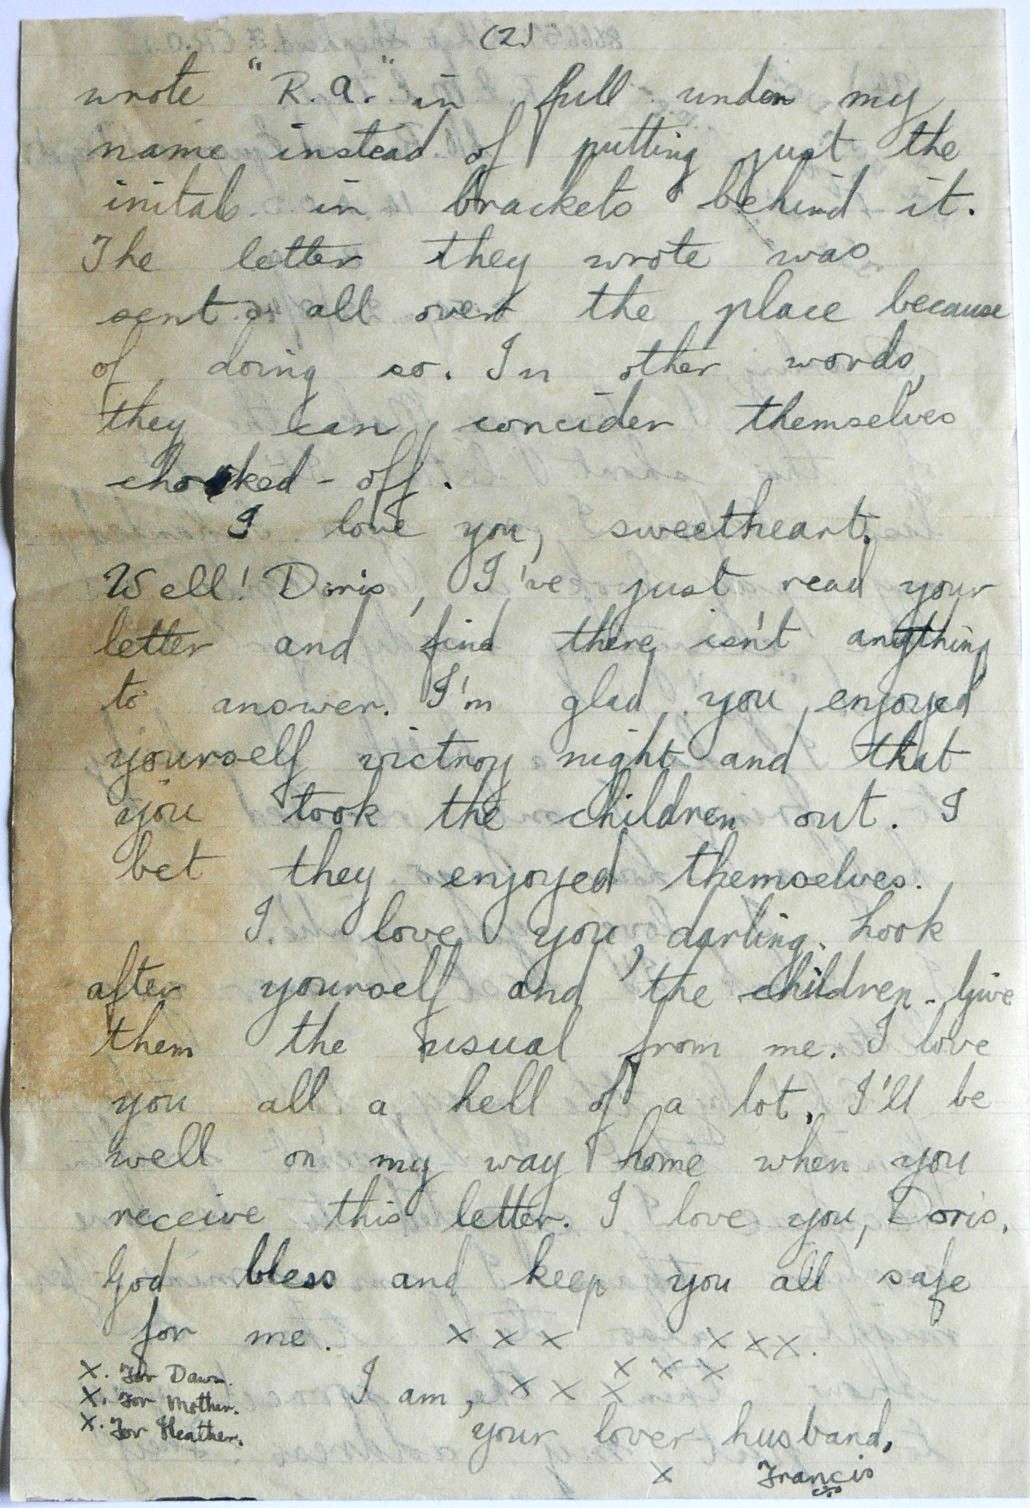 (2)
wrote "R.A." in full under my
name instead of putting just the
initals in brackets behind it.
The letter they wrote was
sent all over the place because
of doing so. In other words,
they can concider themselves
choked-off.
I love you, sweetheart.
Well! Doris, I've just read your
letter and find there isn't anything
to answer. I'm glad you enjoyed
yourself victroy night and that
you took the children out. I
bet they enjoyed themselves.
I love you, darling. Look
after yourself and the children. Give
them the usual from me. I love
you all a hell of a lot, I'll be
well on my way home when you
receive this letter. I love you, Doris.
God bless and keep you all safe
for me. X X X X X X.
X X X
X. For Dawn.
I am, X X X
X. For Mother.
X. For Heather.
your lover husband,
X Francis